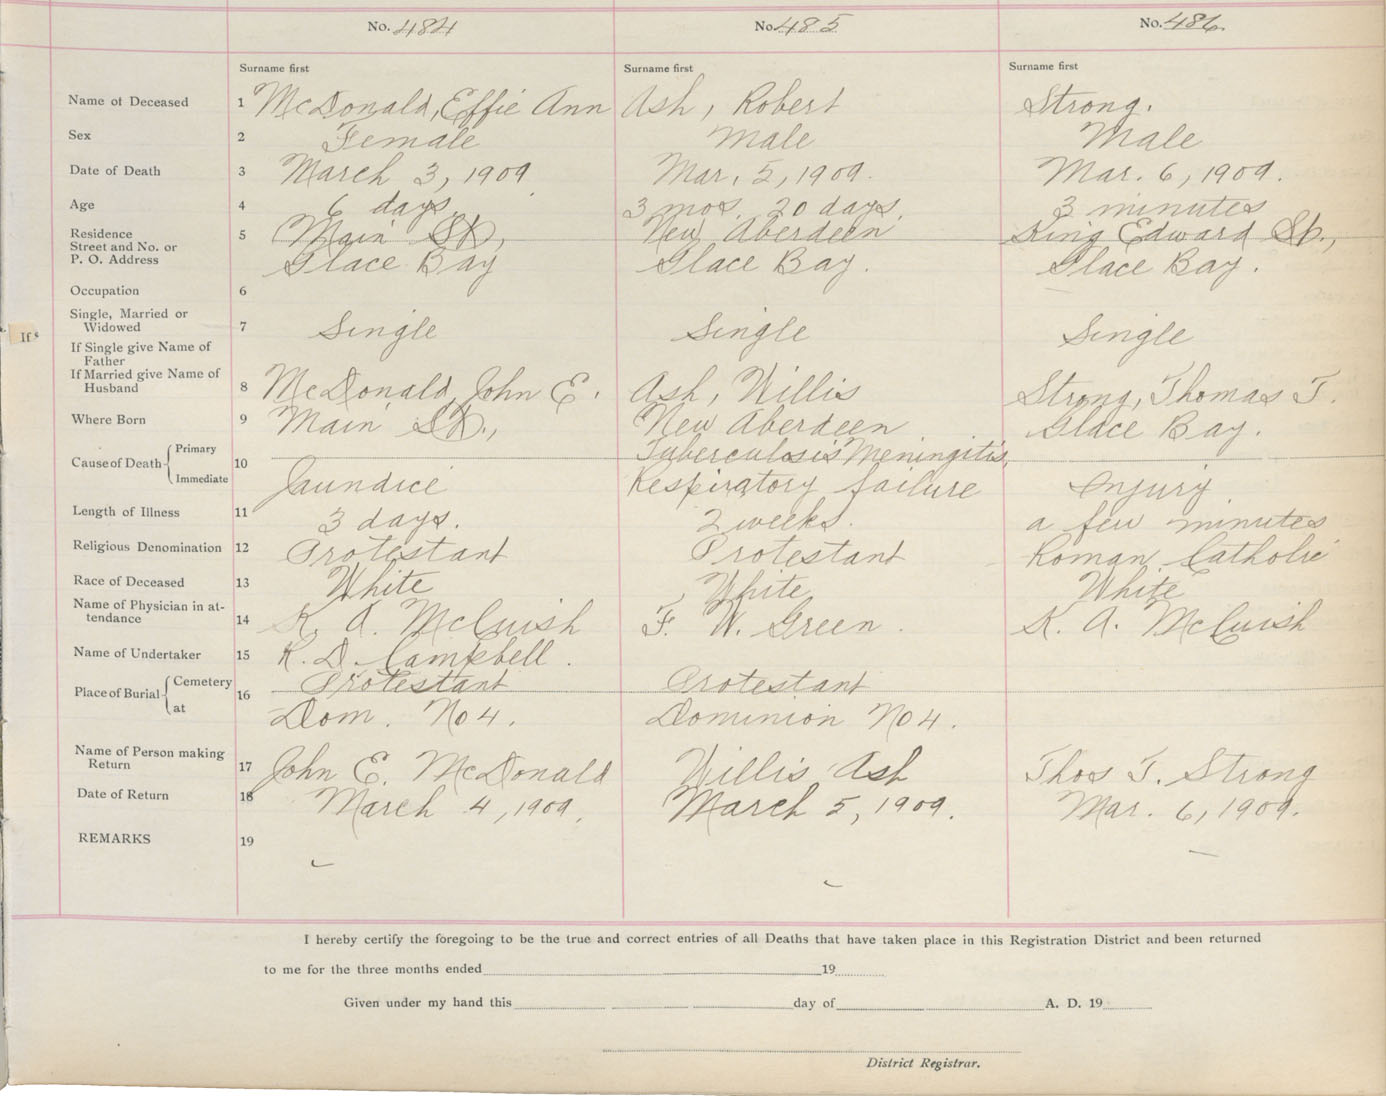 No. 484 No. 485 No. 486
Surname first Surname first Surname first
Name of Deceased 1 McDonald, Effie Ann Ash, Robert Strong.
Sex 2 Female Male Male
Date of Death 3 March 3, 1909 Mar. 5, 1909. Mar. 6, 1909.
Age 4 6 days 3 mos. 20 days. 3 minutes
Residence 5 Main St., New Aberdeen King Edward St.,
Street and No. or
P. O. Address Glace Bay Glace Bay. Glace Bay.
Occupation 6
Single, Married or
Widowed 7 Single Single Single
If
If Single give Name of
Father
If Married give Name of
Husband 8 McDonald, John E. Ash, Willis Strong, Thomas T.
Where Born 9 Main St., New Aberdeen Glace Bay.
Cause of Death Primary 10 Tuberculosis Meningitis,
Immediate Jaundice Respiratory failure Injury.
Length of Illness 11 3 days. 2 weeks. a few minutes
Religious Denomination 12 Protestant Protestant Roman Catholic
Race of Deceased 13 White White White
Name of Physician in at-
tendance 14 K. A. McCuish F. W. Green. K. A. McCuish
Name of Undertaker 15 R. D. Campbell.
Place of Burial Cemetery 16 Protestant Protestant
at Dom. No 4. Dominion No 4.
Name of Person making
Return 17 John E. McDonald Willis Ash Thos T. Strong
Date of Return 18 March 4, 1909. March 5, 1909. Mar. 6, 1909.
REMARKS 19
I hereby certify the foregoing to be the true and correct entries of all Deaths that have taken place in this Registration District and been returned
to me for the three months ended 19
Given under my hand this day of A. D. 19
District Registrar.